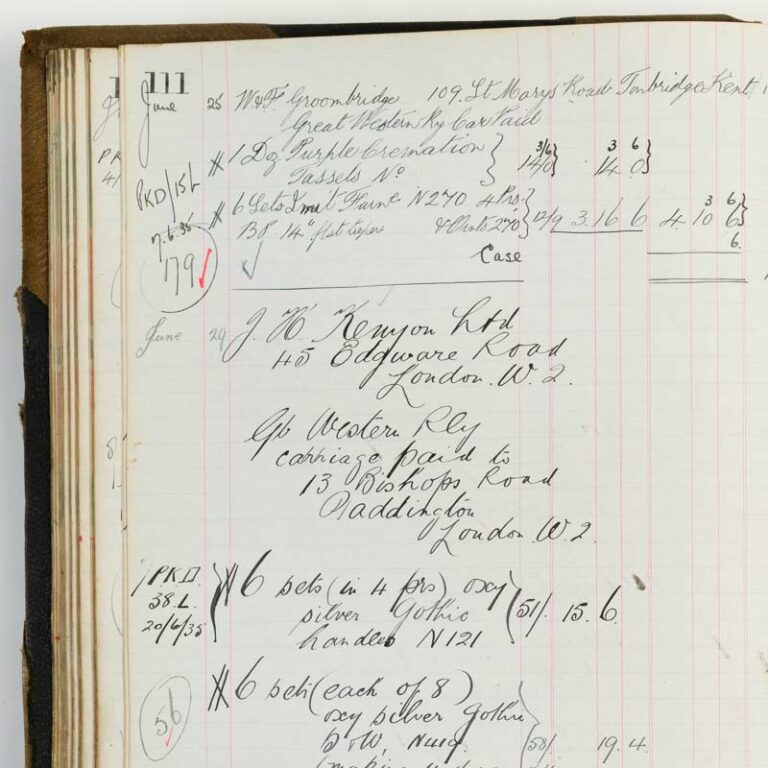 111
June 25 W & F Groombridge 109. St Marys Road Tonbridge Kent
Great Western Ry Car Paid
1 Dz Purple Cremation 3/6 3 6
Tassels No 14/0 14 0
PKD/15L
6 Sets Imit Farne N270 4 Prs 3 6
14" & Onts 270 12/9 3.16 6 4. 10 6
7.6.35 6.
179 Case
June 29 J. H. Kenyon Ltd
45 Edgware Road
London. W. 2.
Gt Western Rly
carriage paid to
13 Bishops Road
Paddington
London W. 2.
PKD 6 sets (in 4 prs) oxy
38. L. silver Gothic 51/. 15. 6.
20/6/35 handles N121
6 sets (each of 8)
56 oxy silver Gothic
N419. 58/. 19. 4.